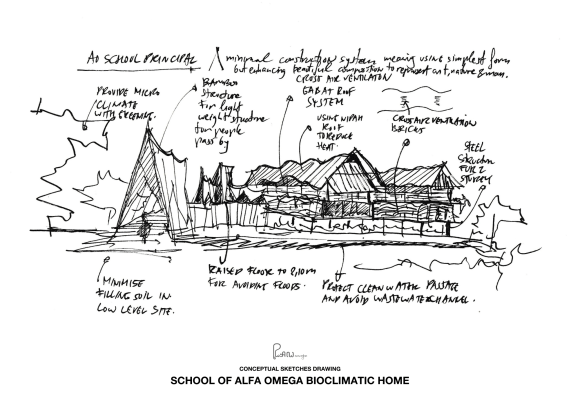 AO SCHOOL PRINCIPAL
minimal construction system, meaning using simplest form
but enhancing beautiful composition to represent art, nature & human.
PROVIDE MICRO
CLIMATE
WITH GREENING.
BAMBOO
STRUCTURE
FOR light
weight structure
for people
pass by
CROSS AIR VENTILATION
AT ROOF
SYSTEM
USING NIPAH
ROOF
TO REDUCE
HEAT.
CROSS AIR VENTILATION
BRICKS
STEEL
STRUCTURE
FOR 2
STOREY
MINIMISE
FILLING SOIL IN
LOW LEVEL SITE.
RAISED FLOOR TO 2,10M
FOR AVOIDING FLOODS.
PROTECT CLEAN WATER PASSAGE
AND AVOID WASTEWATER CHANNEL.
CONCEPTUAL SKETCHES DRAWING
SCHOOL OF ALFA OMEGA BIOCLIMATIC HOME